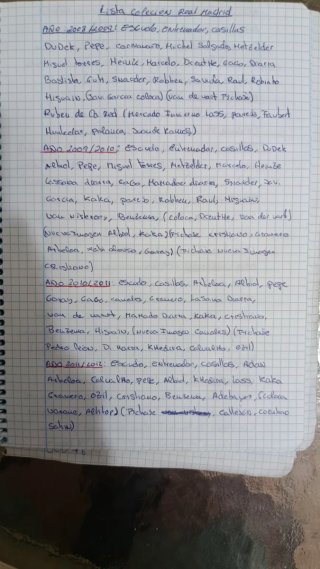 Lista Colección Real Madrid
AÑO 2008/2009: Escudo, entrenador, casillas
Dudek, Pepe, Cannavaro, Michel Salgado, Metzelder
Miguel Torres, Heinze, Marcelo, Drenthe, Gago, Diarra
Baptista, Guti, Sneijder, Robben, Saviola, Raul, Robinho
Higuain, (Javi Garcia coloca) (Van der Vart Fichaje)
Ruben de la Red (Mercado Invierno Lass, parejo, Faubert
Huntelaar, palanca,
AÑO 2009/2010: Escudo, entrenador, casillas, Dudek
Albiol, Pepe, Miguel Torres, Metzelder, Marcelo, Heinze
Lassana diarra, Gago, Mamadou diarra, Sneijder, Javi
Garcia, Kaka, parejo, Robben, Raul, Higuain,
Van nistelrooy, Benzema, (coloca, Drenthe, Van der vart)
(Nueva Imagen Albiol, Kaka) (Fichajes cristiano, Granero
Arbeloa, xabi alonso, Garay) (Fichaje nueva Imagen
cristiano)
AÑO 2010/2011: Escudo, casillas, Arbeloa, Albiol, pepe
Garay, Gago, canales, Granero, Lassana Diarra
Van de vaart, Mamado Diarra, Kaka, Cristiano,
Benzema, Higuain, (Nueva Imagen Canales) (Fichaje
Pedro Leon, Di Maria, Khedira, Carvalho, Ozil)
AÑO 2011/2012: Escudo, entrenador, casillas, Adan
Arbeloa, Carvalho, pepe, Albiol, Khedira, Lass, Kaka
Granero, Ozil, Cristiano, Benzema, Adebayor, (coloca
Varane, Altintop) (Fichaje callejon, coentrao
Sahin)